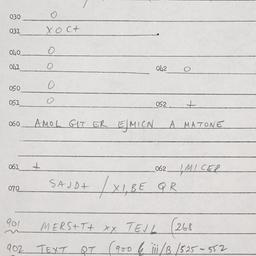 030 O
031 XOC+
040 O
041 O 042 O
050 O
051 O 052 +
060 AMOL GIT ER EJMICN A MATONE
061 + 062 IMICER
070 SAJD+ / XI,BE QR
901 MERS+T+ xx TEJL (268
902 TEXT QT (900 iii/B/525-552